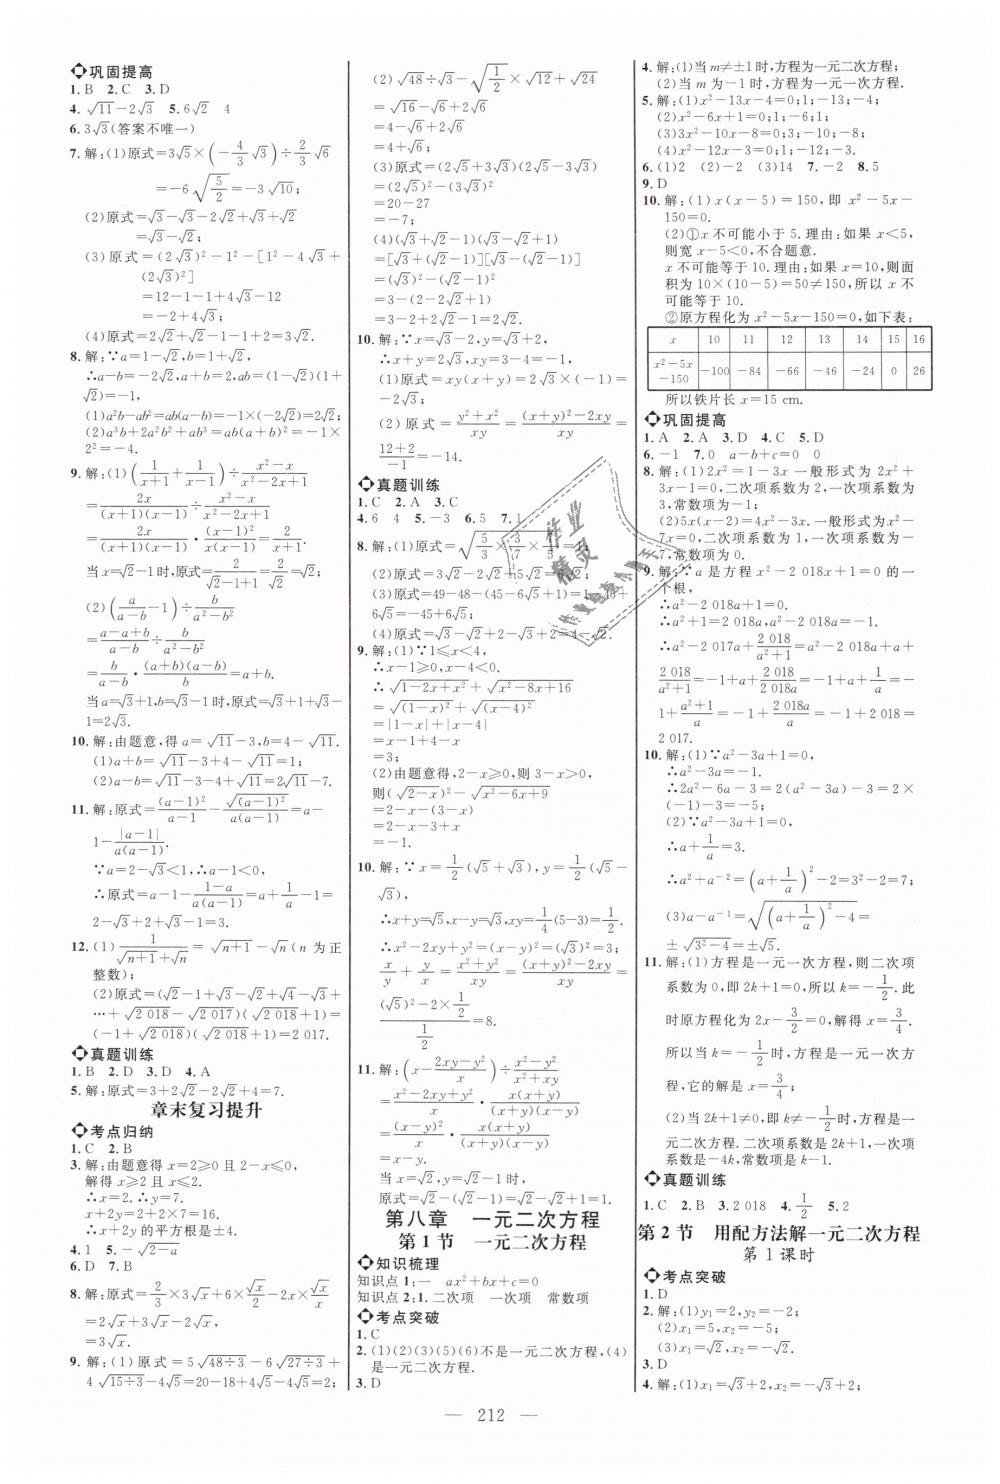 巩固提高
1. B 2. C 3. D
4. √11-2√3 5. 6√2 4
6. 3√3(答案不唯一)
7. 解:(1)原式=3√5×(-4/3 √3)÷2/3 √6
=-6√(5/2)=-3√10;
(2)原式=√3-√3-2√2+√3+√2
=√3-√2;
(3)原式=(2√3)²-1²-[1²-4√3+
(2√3)²]
=12-1-1+4√3-12
=-2+4√3;
(4)原式=2√2+√2-1-1+2=3√2.
8. 解:∵a=1-√2,b=1+√2,
∴a-b=-2√2,a+b=2,ab=(1-√2)(1+
√2)=-1,
(1)a²b-ab²=ab(a-b)=-1×(-2√2)=2√2;
(2)a³b+2a²b²+ab³=ab(a+b)²=-1×
2²=-4.
9. 解:(1)(1/(x+1)+1/(x-1))÷(x²-x)/(x²-2x+1)
=2x/((x+1)(x-1))÷(x²-x)/(x²-2x+1)
=2x/((x+1)(x-1))·(x-1)²/(x(x-1))=2/(x+1).
当x=√2-1时,原式=2/(√2-1+1)=2/√2=√2;
(2)(a/(a-b)-1)÷b/(a²-b²)
=(a-a+b)/(a-b)÷b/(a²-b²)
=b/(a-b)·(a+b)(a-b)/b=a+b.
当a=√3+1,b=√3-1时,原式=√3+1+√3-
1=2√3.
10. 解:由题意,得a=√11-3,b=4-√11.
(1)a+b=√11-3+4-√11=1;
(2)a-b=√11-3-4+√11=2√11-7.
11. 解:原式=(a-1)²/(a-1)-√(a-1)²/(a(a-1))=a-
1-|a-1|/(a(a-1)).
∵a=2-√3<1,∴a-1<0,
∴原式=a-1-(1-a)/(a(a-1))=a+1/a-1=
2-√3+2+√3-1=3.
12. (1)1/(√(n+1)+√n)=√(n+1)-√n(n为正
整数);
(2)原式=(√2-1+√3-√2+√4-√3+
…+√2 018-√2 017)(√2 018+1)=
(-1+√2 018)(√2 018+1)=2 017.
真题训练
1. B 2. D 3. D 4. A
5. 解:原式=3+2√2-2√2+4=7.
章末复习提升
考点归纳
1. C 2. B
3. 解:由题意得x-2≥0且2-x≥0,
解得x≥2且x≤2.
∴x=2.∴y=7.
x+2y=2+2×7=16.
∴x+2y的平方根是±4.
4. 1 5. -√(2-a)
6. D 7. B
8. 解:原式=2/3×3√x+6×√x/2-2x×√x/x
=2√x+3√x-2√x
=3√x.
9. 解:(1)原式=5√(48÷3)-6√(27÷3)+
4√(15÷3)-4√5=20-18+4√5-4√5=2;
(2)√48÷√3-√(1/2)×√12+√24
=√16-√6+2√6
=4+√6;
(3)原式=(2√5+3√3)(2√5-3√3)
=(2√5)²-(3√3)²
=20-27
=-7;
(4)(√3+√2-1)(√3-√2+1)
=[√3+(√2-1)][√3-(√2-1)]
=(√3)²-(√2-1)²
=3-(2-2√2+1)
=3-2+2√2-1=2√2.
10. 解:∵x=√3-2,y=√3+2,
∴x+y=2√3,xy=3-4=-1,
(1)原式=xy(x+y)=2√3×(-1)=
-2√3;
(2)原式=(y²+x²)/xy=((x+y)²-2xy)/xy=
(12+2)/-1=-14.
真题训练
1. C 2. A 3. C
4. 6 4 5. -3 6. 5 7. 1
8. 解:(1)原式=√(5/3×3/7×7/5)=1;
(2)原式=3√2-2√2+5√2=6√2;
(3)原式=49-48-(45-6√5+1)=1-46+
6√5=-45+6√5;
(4)原式=√2+3-3√2+2+√2=4-√2.
9. 解:(1)∵1≤x<4,
∴x-1≥0,x-4<0.
∴√(1-2x+x²)+√(x²-8x+16)
=√(1-x)²+√(x-4)²
=|1-x|+|x-4|
=x-1+4-x
=3;
(2)由题意得,2-x≥0,则3-x>0,
则(√(2-x))²-√(x²-6x+9)
=2-x-(3-x)
=2-x-3+x
=-1.
10. 解:∵x=1/2(√5+√3),y=1/2(√5-
√3),
∴x+y=√5,x-y=√3,xy=1/4(5-3)=1/2.
∴x²-2xy+y²=(x-y)²=(√3)²=3;
x/y+y/x=(x²+y²)/xy=((x+y)²-2xy)/xy=
((√5)²-2×1/2)/(1/2)=8.
11. 解:(x-(2xy-y²)/x)÷(x²-y²)/(x²+xy)
=(x²-2xy+y²)/x·x(x+y)/((x+y)(x-y))
=(x-y)²/x·x(x+y)/((x+y)(x-y))
=x-y.
当x=√2,y=√2-1时,
原式=√2-(√2-1)=√2-√2+1=1.
第八章 一元二次方程
第1节 一元二次方程
知识梳理
知识点1:一 ax²+bx+c=0
知识点2:1.二次项 一次项 常数项
考点突破
1. C
2. (1)(2)(3)(5)(6)不是一元二次方程,(4)
是一元二次方程.
3. D
4. 解:(1)当m≠±1时,方程为一元二次方程;
(2)当m为-1时,方程为一元一次方程.
5. 解:(1)x²-13x-4=0;1;-13;-4;
(2)x²-6x+1=0;1;-6;1;
(3)3x²-10x-8=0;3;-10;-8;
(4)x²-12x-3=0;1;-12;-3.
6. (1)2 (2)-2 (3)14 7. -2 8. 5
9. D
10. 解:(1)x(x-5)=150,即x²-5x-
150=0.
(2)①x不可能小于5.理由:如果x<5,
则宽x-5<0,不合题意.
x不可能等于10.理由:如果x=10,则面
积为10×(10-5)=50≠150,所以x不
可能等于10.
②原方程化为x²-5x-150=0,如下表:
x 10 11 12 13 14 15 16
x²-5x-150 -100 -84 -66 -46 -24 0 26
所以铁片长x=15 cm.
巩固提高
1. A 2. A 3. D 4. C 5. D
6. -1 7. 0 a-b+c=0 0
8. 解:(1)2x²=1-3x一般形式为2x²+
3x-1=0,二次项系数为2,一次项系数为
3,常数项为-1;
(2)5x(x-2)=4x²-3x.一般形式为x²-
7x=0,二次项系数为1,一次项系数为
-7,常数项为0.
9. 解:∵a是方程x²-2 018x+1=0的一
个根,
∴a²-2 018a+1=0.
∴a²+1=2 018a,a²=2 018a-1.
∴a²-2 017a+2 018/(a²+1)=2 018a-2 017a+
2 018/(a²+1)-1=a+2 018/2 018a-1=-1+a+1/a=-
1+(a²+1)/a=-1+2 018a/a=-1+2 018=
2 017.
10. 解:(1)∵a²-3a+1=0,
∴a²-3a=-1.
∴2a²-6a-3=2(a²-3a)-3=2×
(-1)-3=-5;
(2)∵a²-3a+1=0,
∴a+1/a=3.
∴a²+a⁻²=(a+1/a)²-2=3²-2=7;
(3)a-a⁻¹=√((a+1/a)²-4)=
±√(3²-4)=±√5.
11. 解:(1)方程是一元一次方程,则二次项
系数为0,即2k+1=0,所以k=-1/2.此
时原方程化为2x-3/2=0,解得x=3/4.
所以当k=-1/2时,方程为一元一次方
程,它的解是x=3/4;
(2)当2k+1≠0,即k≠-1/2时,方程是一
元二次方程.二次项系数是2k+1,一次项
系数是-4k,常数项是k-1.
真题训练
1. C 2. B 3. 2 018 4. 1/2 5. 2
第2节 用配方法解一元二次方程
第1课时
考点突破
1. D
2. 解:(1)y₁=2,y₂=-2;
(2)x₁=5,x₂=-5;
(3)x₁=√2,x₂=-√2.
3. D
4. 解:(1)x₁=√3+2,x₂=-√3+2;
— 212 —
作业
精灵